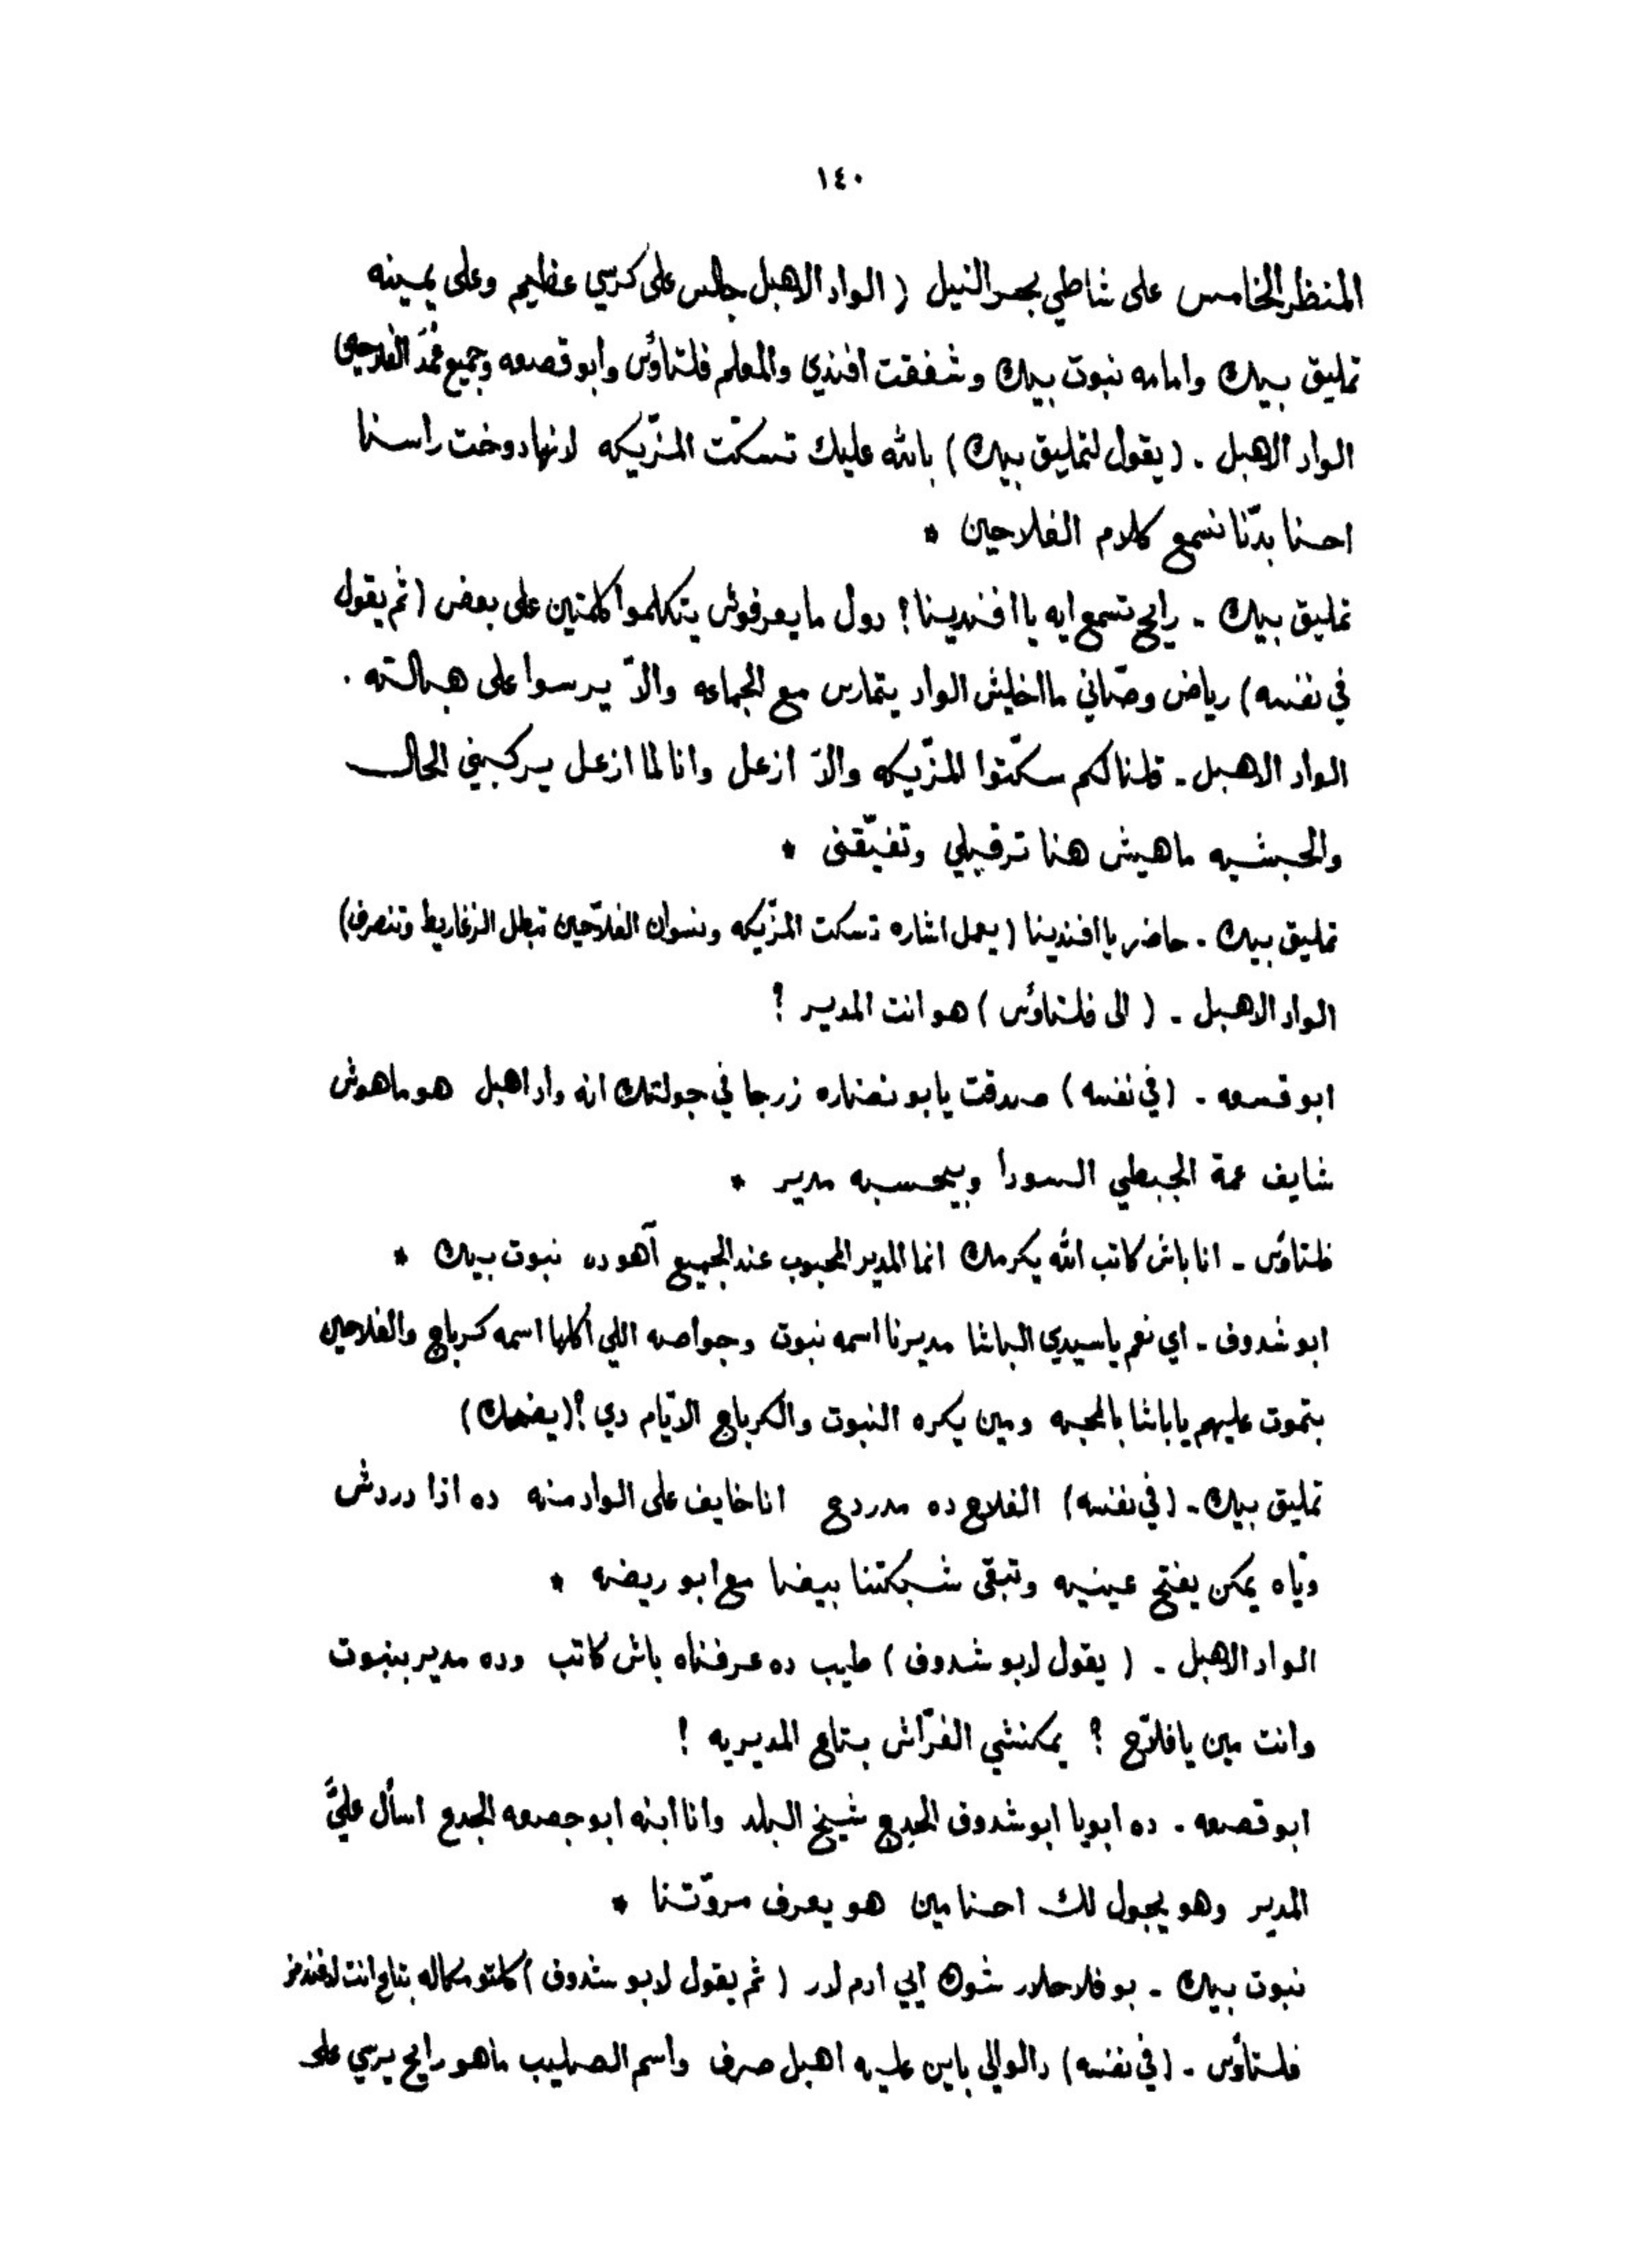 ١٤٠
المنظر الخامس على شاطي بحر النيل (الواد الاهبل جالس على كرسي عظيم وعلى يمينه
تمليق بيك وامامه نبوت بيك وشفقت افندي والمعلم فلتاؤس وابو قصعه وجميع عُمَد الفلاحين
الواد الاهبل . (يقول لتمليق بيك) بالله عليك تسكّت المزّيكه لانها دوخت راسنا
احنا بدّنا نسمع كلام الفلاحين *
تمليق بيك . رايح تسمع ايه يا افندينا؟ دول ما يعرفوش يتكلموا كلمتين على بعض (ثم يقول
في نفسه) رياض وصّاني ما اخليش الواد يتمارس مع الجماعه والاّ يرسوا على هبالته .
الواد الاهبل - قلنا لكم سكّتوا المزّيكه والاّ ازعل وانا لما ازعل يركبني الحال
والحبشيه ماهيش هنا ترقيلي وتفيّقنى *
تمليق بيك . حاضر يا افندينا (يعمل اشاره تسكت المزّيكه ونسوان الفلاّحين تبطل الزغاريط وتنصرف)
الواد الاهبل - (الى فلتاؤس) هو انت المدير ؟
ابو قسعه . (في نفسه) صدقت يابو نضاره زرجا في جولتك انه واد اهبل هو ماهوش
شايف عمة الجبطي السودا وبيحسبه مدير *
فلتاؤس - انا باش كاتب الله يكرمك انما المدير المحبوب عند الجميع آهو ده نبوت بيك *
ابو شدوف - اي نعم يا سيدي الباشا مديرنا اسمه نبوت وجواصه اللي أكلها اسمه كرباج والفلاحين
بتموت عليهم يا باشا بالمحبه ومين يكره النبوت والكرباج الايّام دي؟ (يضحك)
تمليق بيك . (في نفسه) الفلاح ده مدردح انا خايف على الواد منه ده اذا دردش
ويّاه يمكن يفتح عينيه وتبقى شبكتنا بيضا مع ابو ريضه *
الواد الاهبل . (يقول لابو شدوف) طيب ده عرفناه باش كاتب وده مدير بنبوت
وانت مين يا فلاّح ؟ يمكنشي الفرّاش بتاع المديريه !
ابو قصعه . ده ابويا ابو شدوف الجدع شيخ البلد وانا ابنه ابو جصعه الجدع اسأل عليَّ
المدير وهو يجول لك احنا مين هو يعرف مروّتنا *
نبوت بيك - بو فلاحلار شوك ايي ادم لدر (ثم يقول لابو شدوف) كلتو مكاله بتاع انت لافندمز
فلتاؤس . (في نفسه) دالوالي باين عليه اهبل صرف واسم الصليب ماهو رايح يرسي على